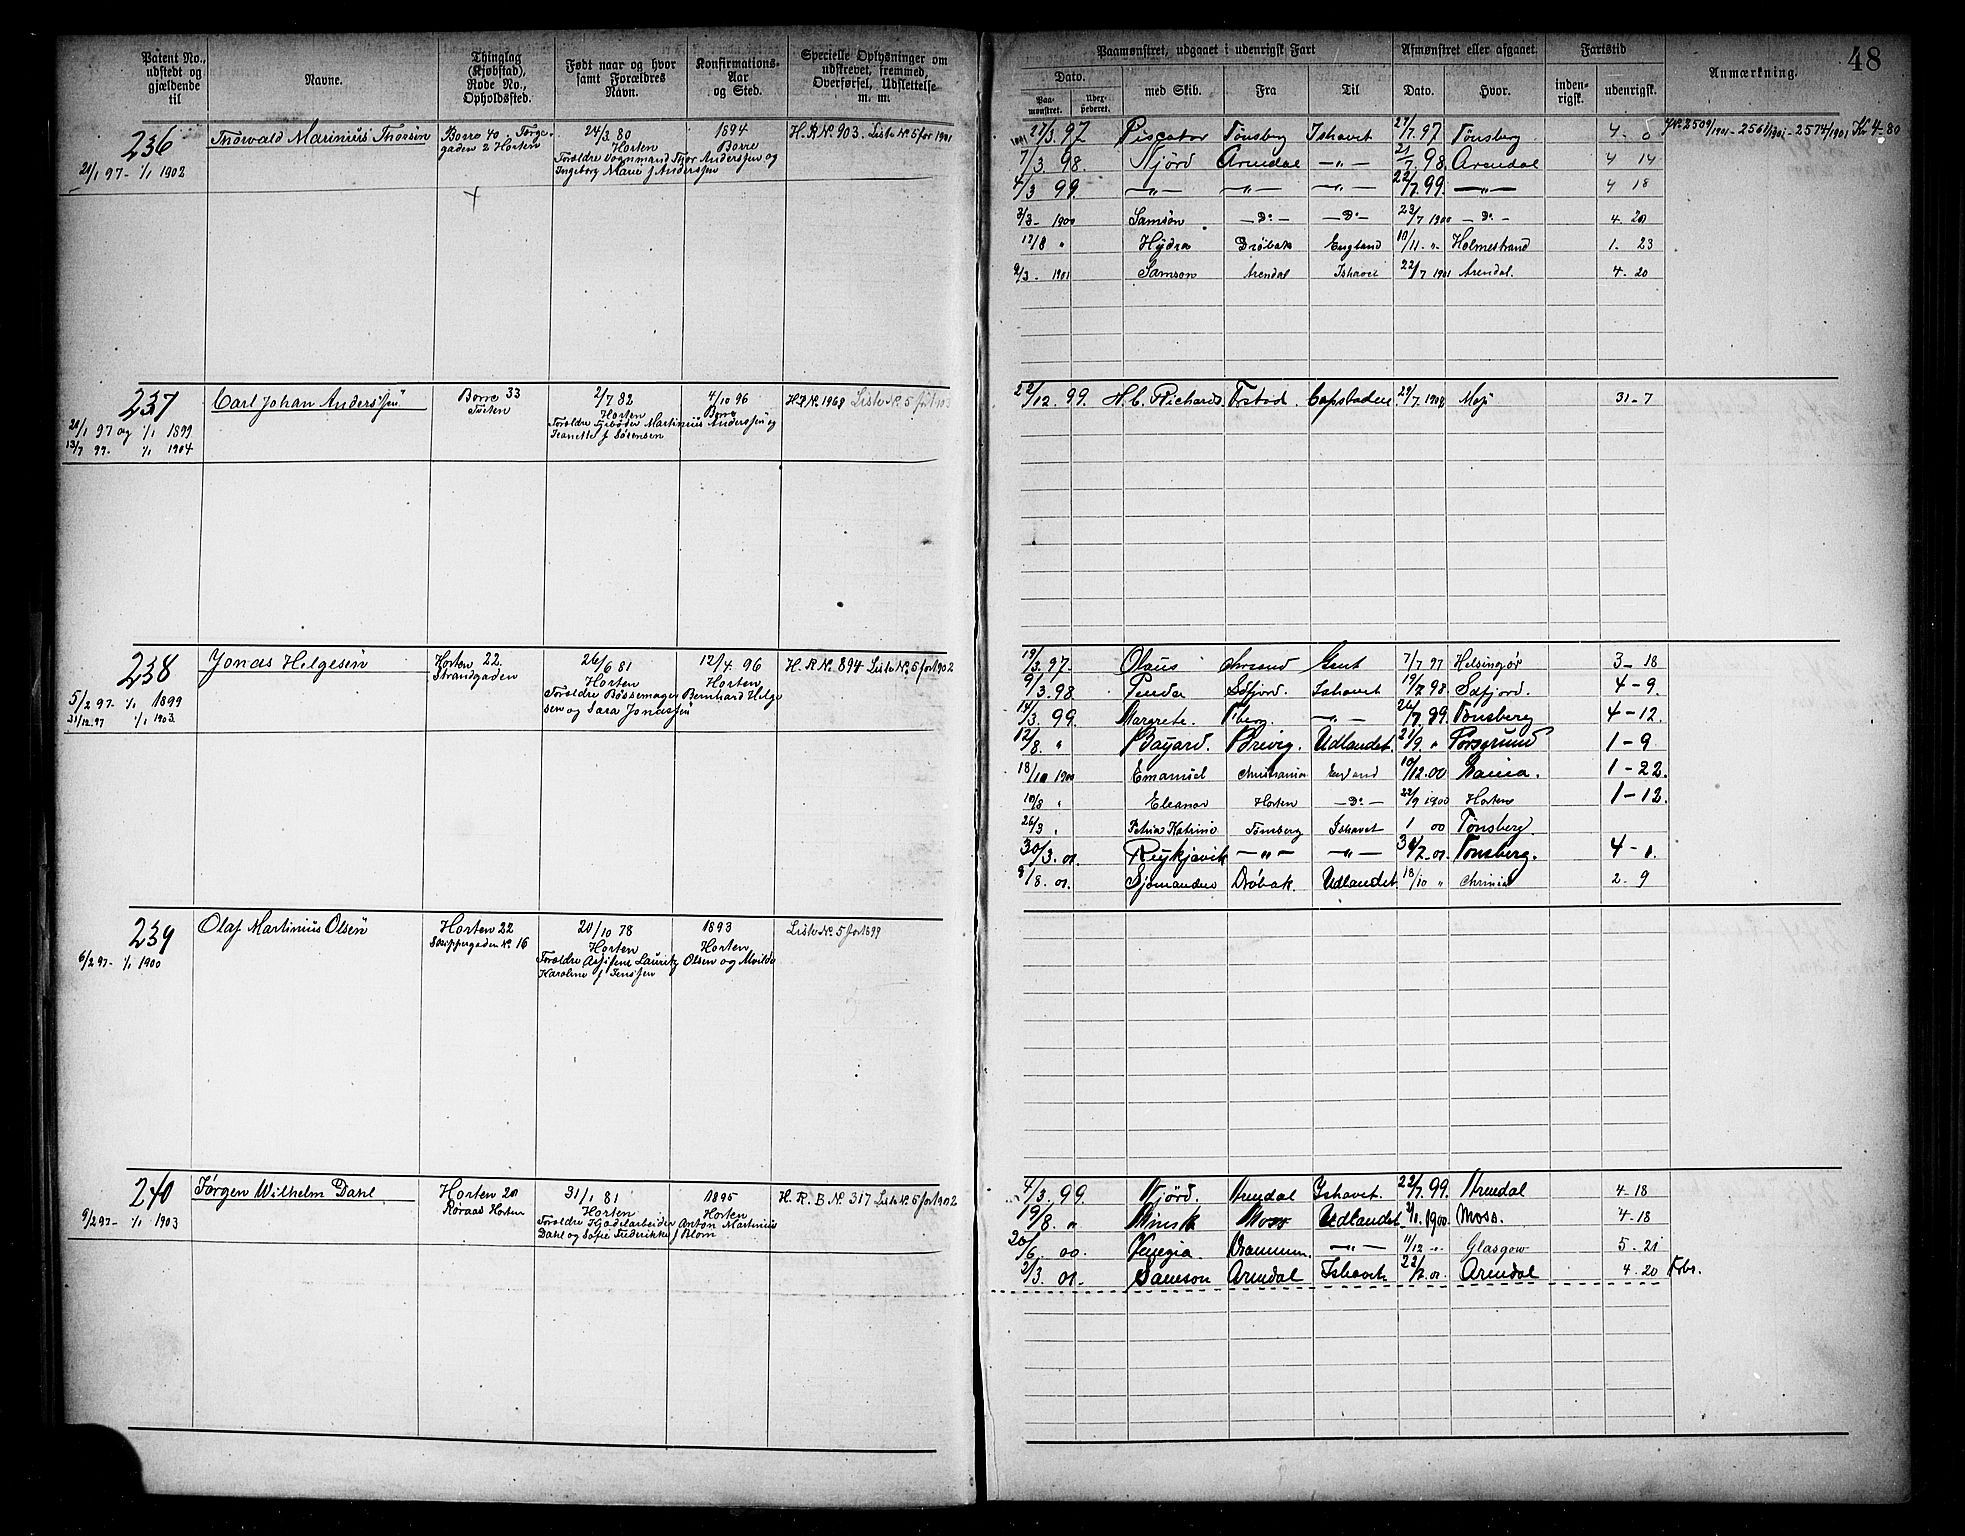 48
Patent No., udstedt og gjældende til
Navne.
Thinglag (Kjøbstad), Rode No., Opholdssted.
Født naar og hvor samt Forældres Navn.
Konfirmations-Aar og Sted.
Specielle Oplysninger om udskrevet, fremmed, Overførsel, Udslettelse m. m.
Paamønstret, udgaaet i udenrigsk Fart
Afmønstret eller afgaaet.
Fartstid
Anmærkning.
Dato.
Paa-mønstret.
med Skib.
Fra
Til
Dato.
Hvor.
inden-rigsk.
udenrigsk.
236 Thorvald Marinius Thorsen Borre 40 24/3 80 1894 H.R.N. 903. Liste N. 5 for 1901
gaden 2 Horten Horten Borre
Forældre Vognmand Thor Anderssen og
21/1 97- 1/1 1902 Ingeborg Marie f Anderssen
27/3 97 Piscator Tønsberg Ishavet 27/7 97 Tønsberg 4 - 0
7/3 98. Njörd Arendal —"— 21/7 98. Arendal 4 14
4/3 99. —"— —"— —"— 22/7 99. —"— 4 18
3/3 - 1900 Samson —Do— —Do— 23/7 1900 —Do— 4. 20
12/8 " Hydra Drøbak England 10/11 " Holmestrand 1. 23
2/3 - 1901 Samson Arendal Ishavet 22/7 1901 Arendal. 4. 20
237 Carl Johan Anderssen Borre 33 2/7 82 4/10 96 H.R.N. 1968 Liste N. 5 for 1903
Horten Borre
21/1 97 og 1/1 1899 Forældre Martinius Anderssen og
13/7 99. 1/1 1904 Jeanette f Sørensen
22/12. 99. H.C. Richards 31-7
238 Jonas Helgesen Horten 22. 26/6 81 12/4 96 H.R.N. 894 Liste N. 5 for 1902
Strandgaden Horten Horten
5/2 97- 1/1 1899 Forældre Bøssemager Bernhard Helge
31/12-97 1/1 1903. sen og Sara Jonassen
19/3. 97. Olaus Gent 7/7 97 Helsingør 3-18
9/3. 98. Ishavet 19/7 98 4-9.
14/3. 99. Margrete. —"— 26/7. 99. Tønsberg 4-12.
12/8. " Bayard. Brevig. Udlandet. 21/9. " Porsgrund 1-9
18/10 1900 Emanuel Christiania England 10/12. 00 1-22.
10/8 " Eleanor Horten —Do— 22/9 1900 Horten 1-12.
26/3 " Petria Katrine Tønsberg Ishavet 00 Tønsberg.
30/3. 01. Reykjavik —"— —"— Tønsberg. 4-1.
9/8. 01. Sjømanden Drøbak. Udlandet 18/10 " Chrinia 2. 9
239 Olaf Martinius Olsen Horten 22 20/10 78 1893 Liste N. 5 for 1899
Skippergaden N. 16 Horten Horten
6/2 97- 1/1 1900 Forældre Lauritz Olsen og Alvilde
Karoline f Jenssen
240 Jørgen Wilhelm Dahl Horten 20 31/1 81 1895 H.R.B.N. 317 Liste N. 5 for 1902
Horten Horten
9/2 97- 1/1 1903 Forældre Anton Martinius
Dahl og Sofie Frederikke f Blom
4/3. 99. Njörd. Arendal Ishavet. 22/7. 99. Arendal 4-18
19/8. " Minsk Moss Udlandet 1900 Moss. 4-18
20/6. 00. Venezia Drammen. —"— 11/12 " Glasgow 5. 21
2/3. 01. Samson Arendal Ishavet 22/7. 01. Arendal 4. 20